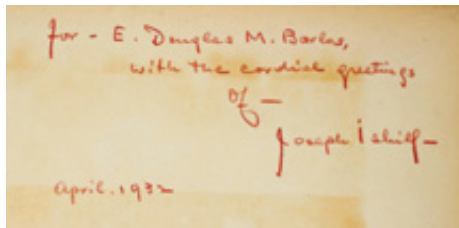 for - E. Douglas M. Barlow,
with the cordial greetings
of -
Joseph Ishill -
April. 1932